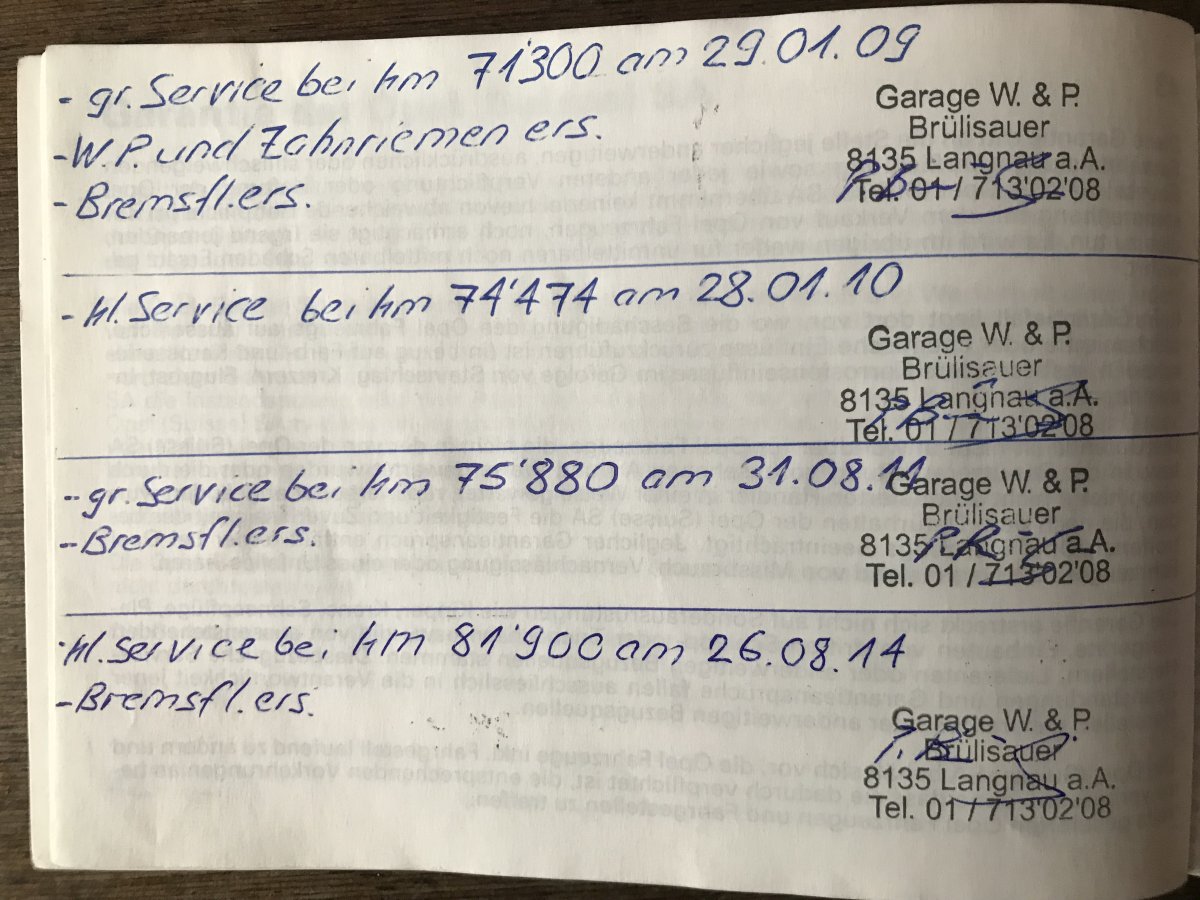 - gr. Service bei km 71'300 am 29.01.09
- W.P. und Zahnriemen ers.
- Bremsfl. ers.
Garage W. & P.
Brülisauer
8135 Langnau a.A.
Tel. 01 / 713'02'08
- kl. Service bei km 74'474 am 28.01.10
Garage W. & P.
Brülisauer
8135 Langnau a.A.
Tel. 01 / 713'02'08
- gr. Service bei km 75'880 am 31.08.11
- Bremsfl. ers.
Garage W. & P.
Brülisauer
8135 Langnau a.A.
Tel. 01 / 713'02'08
- kl. Service bei km 81'900 am 26.08.14
- Bremsfl. ers.
Garage W. & P.
Brülisauer
8135 Langnau a.A.
Tel. 01 / 713'02'08